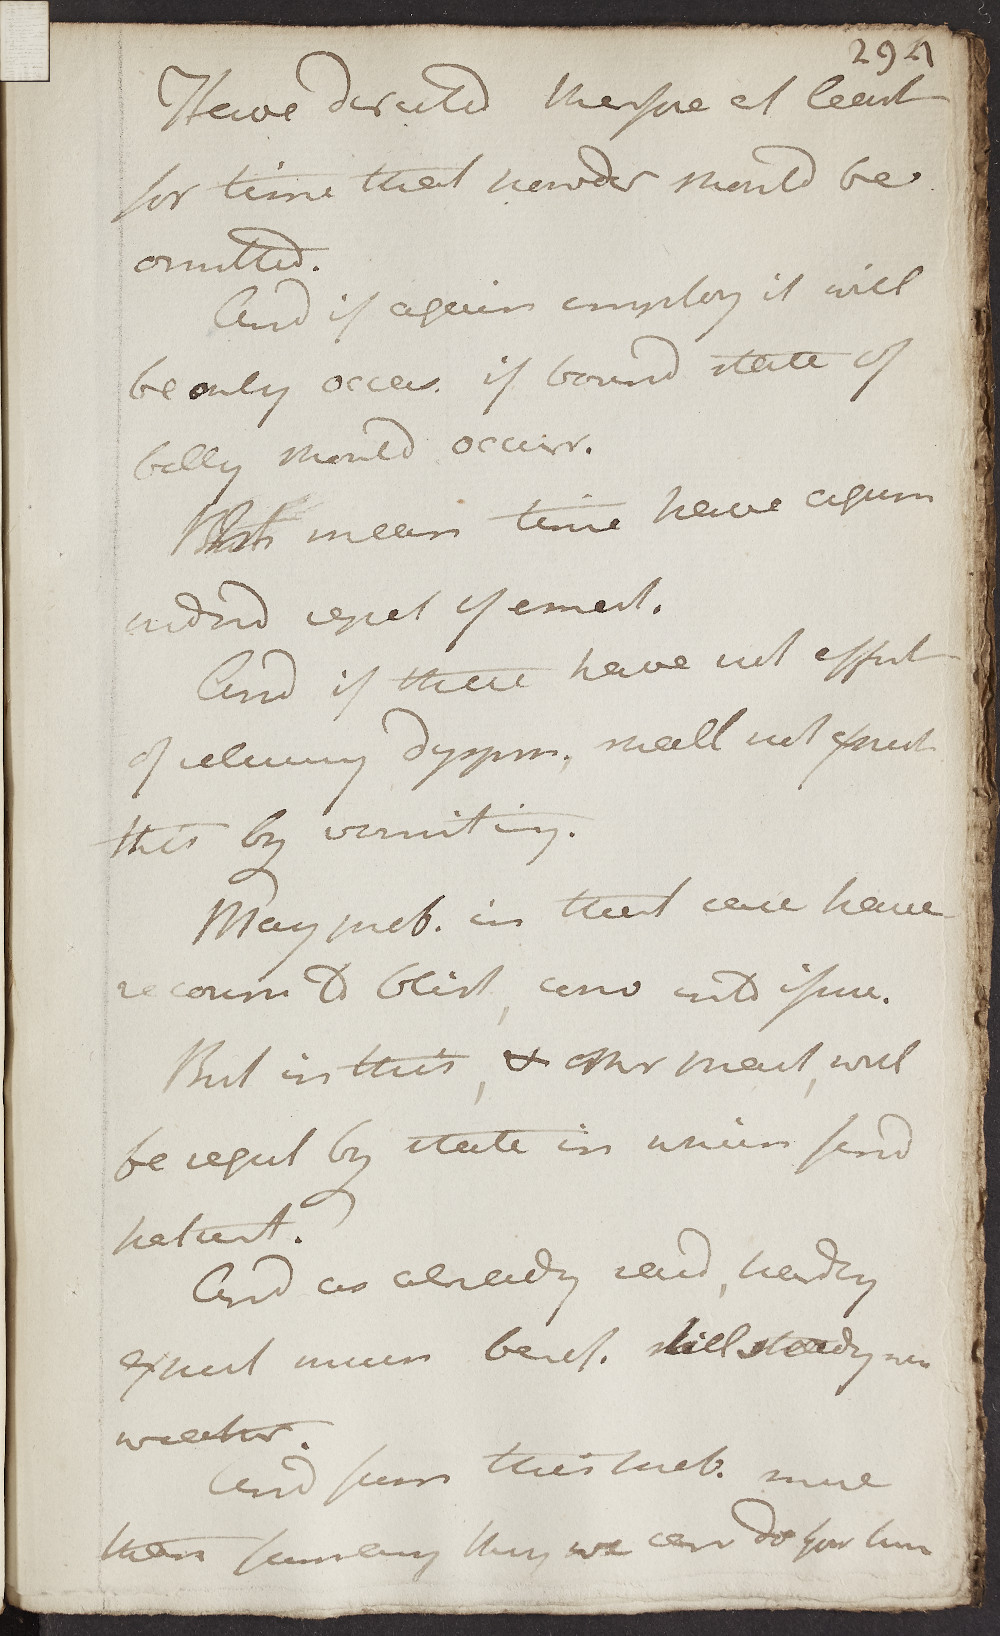 294
Have directed therfore at least
for time that powder should be
omitted.
And if again employ it will
be only occas. if bound state of
belly should occur.
mean time have again
ordrd repet of emet.
And if these have not effect
of relieving dyspnœ, shall not expect
this by vomiting.
May prob. in that case have
recours to blist, and
But in this, & other pract, will
be regul by state in which find
patient.
And as already said, hardly
expect much benef. till steady
weather.
And from this prob. more
than from any thing we can do for him